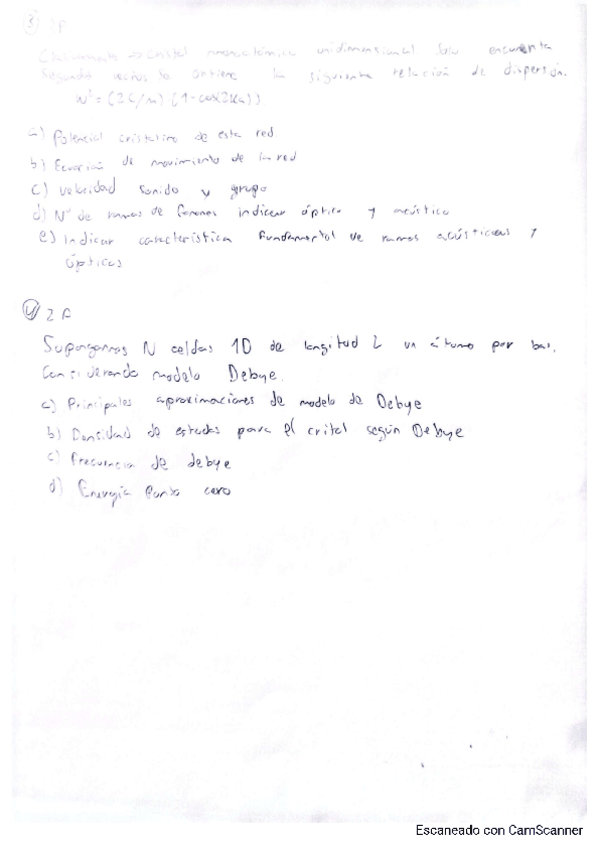 ③ 2P
cristal monoatómico unidimensional solo encuenta
segundo vecinos se obtiene la siguiente relación de dispersión.
W² = (2C/m) (1-cos(2Ka))
a) Potencial cristalino de esta red
b) Ecuación de movimiento de la red
c) velocidad sonido y grupo
d) Nº de ramas de fonones indicar óptico y acústico
e) Indicar característica fundamental de ramas acústicas y
ópticas
④ 2P
Supongamos N celdas 1D de longitud L un átomo por
Considerando modelo Debye.
a) Principales aproximaciones de modelo de Debye
b) Densidad de estados para el cristal según Debye
c) Frecuencia de debye
d) Energía Punto cero
Escaneado con CamScanner